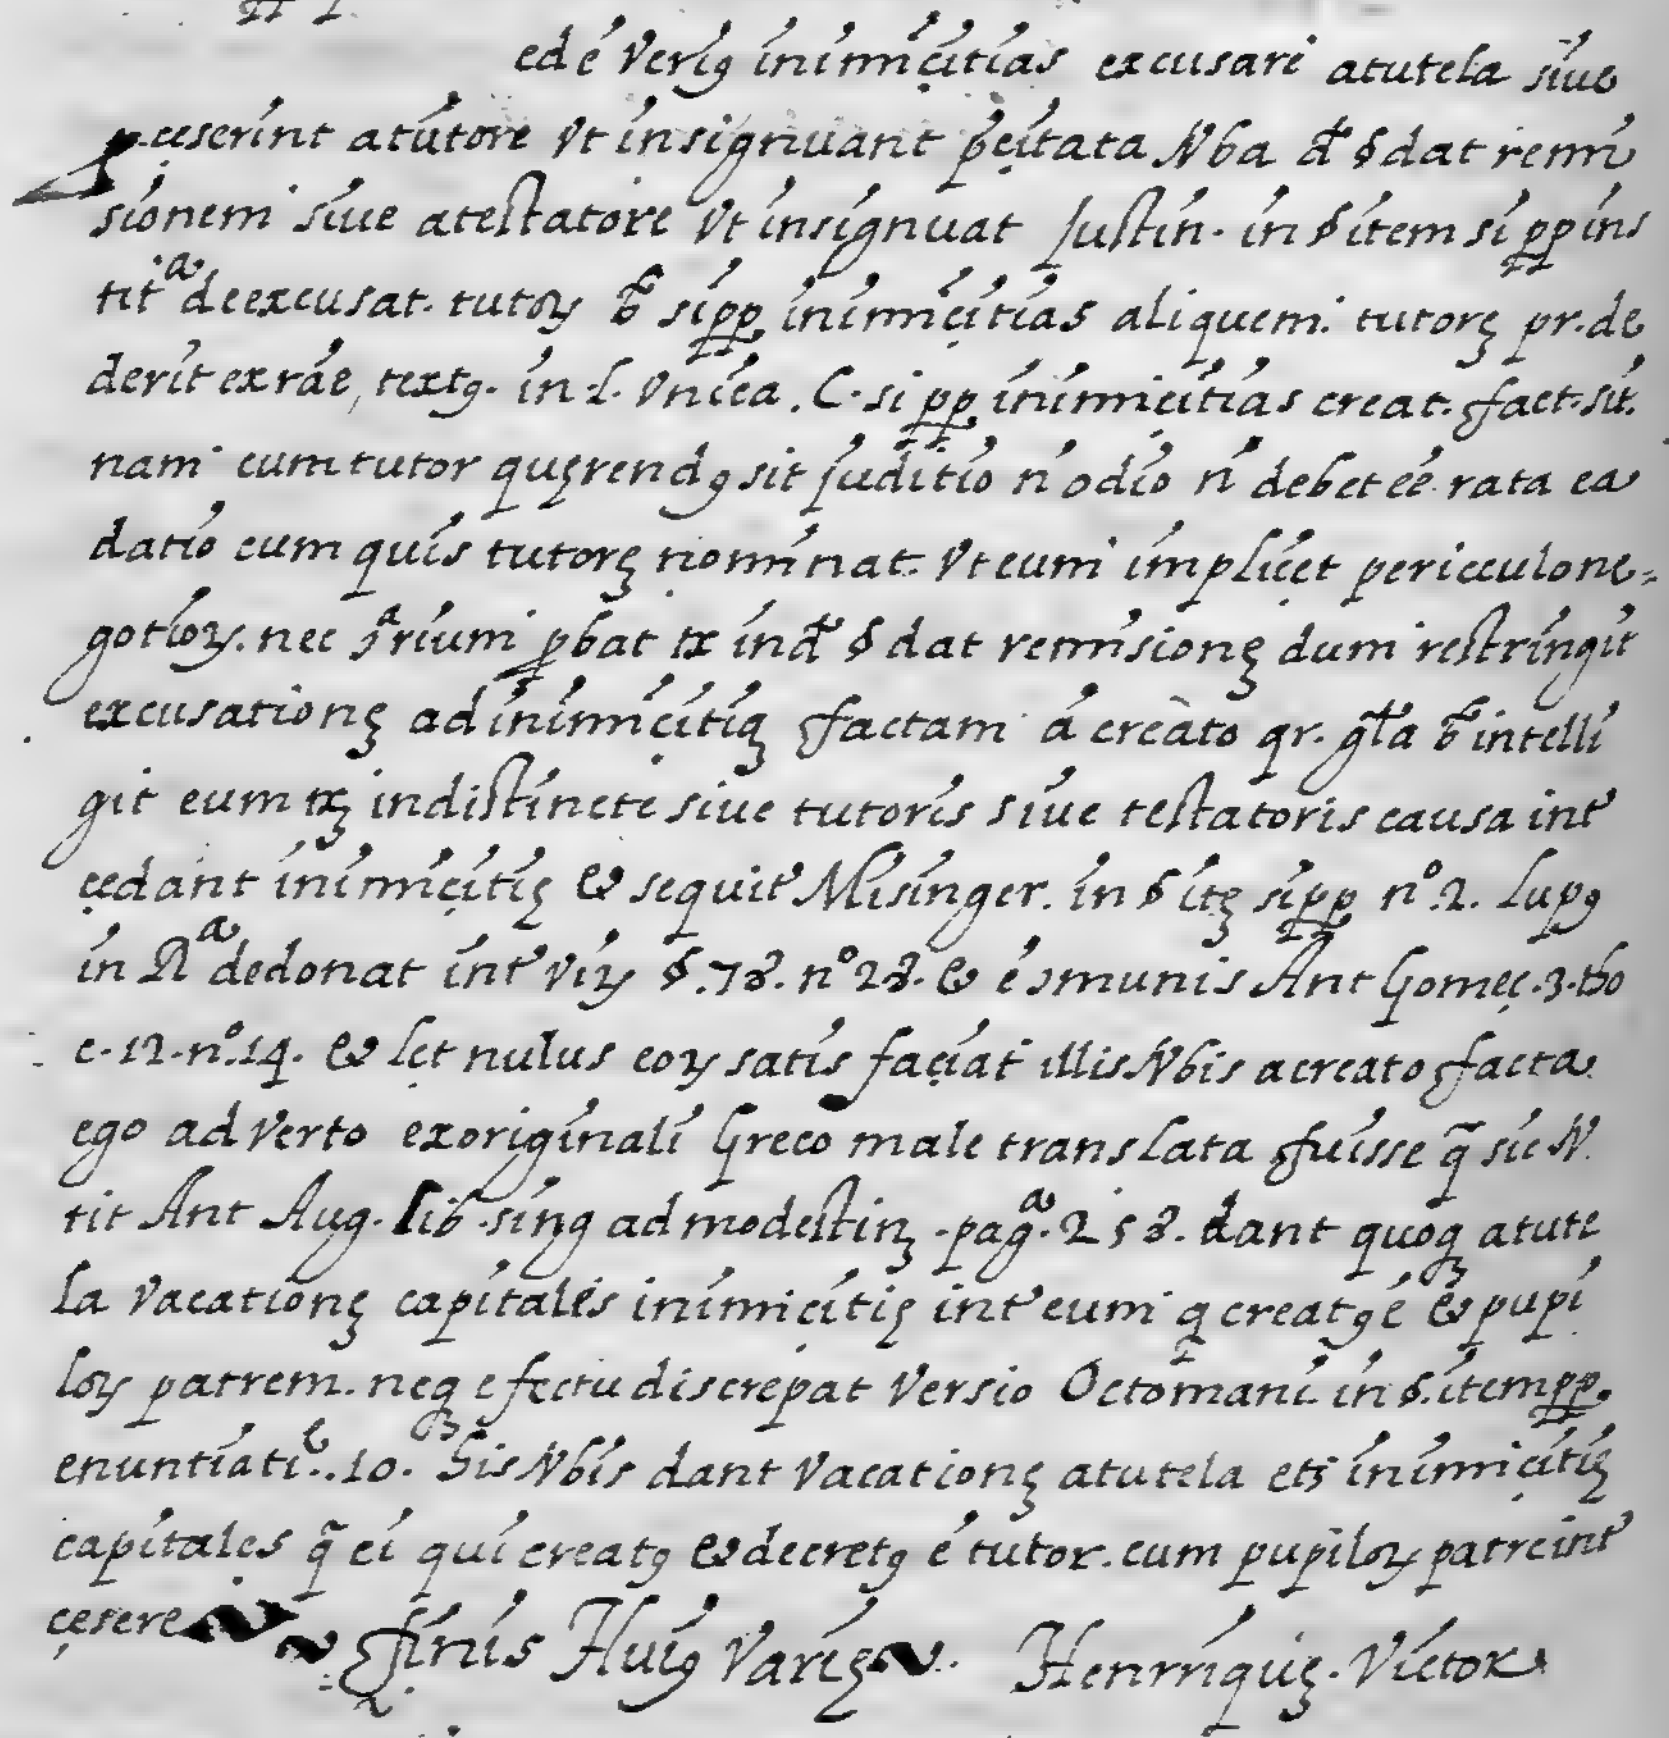 ed é verig inimicitias excusari atutela siue
p.cęserint atutore vt insignuant pęcitata Nba d § dat remi
sionem siue atestatore vt insignuat Justin. in § item si pp ins
tit ª deexcusat. tutoɀ b sipp inimicitias aliquem. tutorę pr. de
derit ex ráe, textg. in .l. vnica. C. si pp inimicitias creat. fact. sit.
nam cum tutor quęrendg sit juditio n odio n debet eé rata ea
datio cum quis tutorę nominat. vt eum implicet pericculone=
gotioɀ. nec ɔrium pbat tx in d § dat remisionę dum restringit
excusationę ad inimicitią factam á creato qr. gła b intelli
git eum txę indistincte siue tutoris siue testatoris causa int
cedant inimicitię & sequit Misinger. in § itę sipp nº. 2. Lupg
in Rª dedonat int viɀ §. 78. nº 28. & é ɔmunis Ant Gomeç. 3. tho
c. 12. nº. 14. & lęt nulus eoɀ satis faciat illis Nbis acreato facta
ego adverto exoriginali Greco male translata fuisse q̃ sic N.
tit Ant Aug. lib. sing ad modestinę. pag.ª 258. dant quoq atute
la vacationę capitalęs inimicitię int eum q creatg é & pupi
loɀ patrem. neq efectu discrepat versio Octomani in §. item pp.
enuntiati.. 10. his Nbis dant vacationę atutela ets inimicitię
capitales q̃ ei qui creatg & decretg é tutor. cum pupiloɀ patre int
çesere finis Huig Varię. Henrriquię. Victor